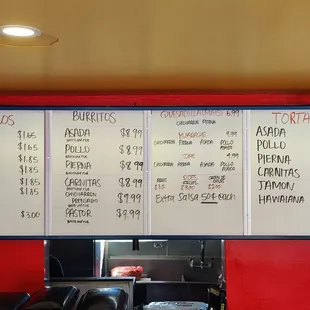 OS
$1.65
$1.65
$1.85
$1.85
$1.85
$1.85
$3.00
BURRITOS
ASADA $8.99
POLLO $8.99
PIERNA $8.99
CARNITAS $8.99
CHICHARRON
PRENSADO $9.99
PASTOR $9.99
6.99
CHICHARRON PIERNA
HUARACHE 9.99
CHICHARRON PIERNA ASADA POLLO
4.99
CHICHARRON PIERNA ASADA POLLO
SIDES
Extra Salsa 50¢ each
TORTA
ASADA
POLLO
PIERNA
CARNITAS
JAMON
HAWAIANA